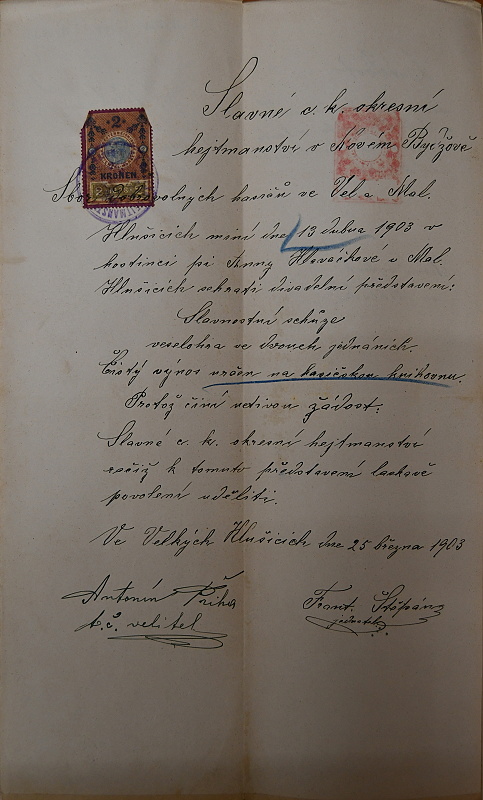 Slavné c. k. okresní
hejtmanství v Novém Bydžově
2
KRONEN
Sbor dobrovolných hasičů ve Vel. a Mal.
Hlušicích míní dne 13 dubna 1903 v
hostinci pí Anny Hlaváčkové v Mal.
Hlušicích sehrati divadelní představení:
Slavnostní schůze
veselohra ve dvouch jednáních.
Čistý výnos určen na hasičskou knihovnu.
Protož činí uctivou žádost:
Slavné c. k. okresní hejtmanství
račiž k tomuto představení laskavě
povolení uděliti.
Ve Velkých Hlušicích dne 25 března 1903
Antonín Příha
t. č. velitel
Frant. Štěpán
jednatel